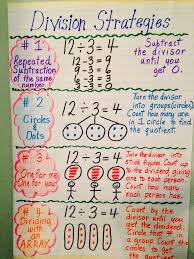 Division Strategies
# 1
Repeated
Subtraction
of the same
number
12÷3=4
12-3=9
9-3=6
6-3=3
3-3=0
Subtract
the divisor
until you
get 0.
# 2
Circles
&
Dots
12÷3=4
Turn the divisor
into groups (circles)
Count how many are
in 1 circle to find
the quotient.
# 3
One for me
One for you!
12÷3=4
Turn the divisor into
stick figures. Count up
to the dividend giving
one to each person.
Count how many
each person has.
# 4
Dividing
with an
ARRAY
12÷3=4
Count by the
divisor until you
get the dividend.
Circle the #
in a group. Count
the circles to
get the quotient.